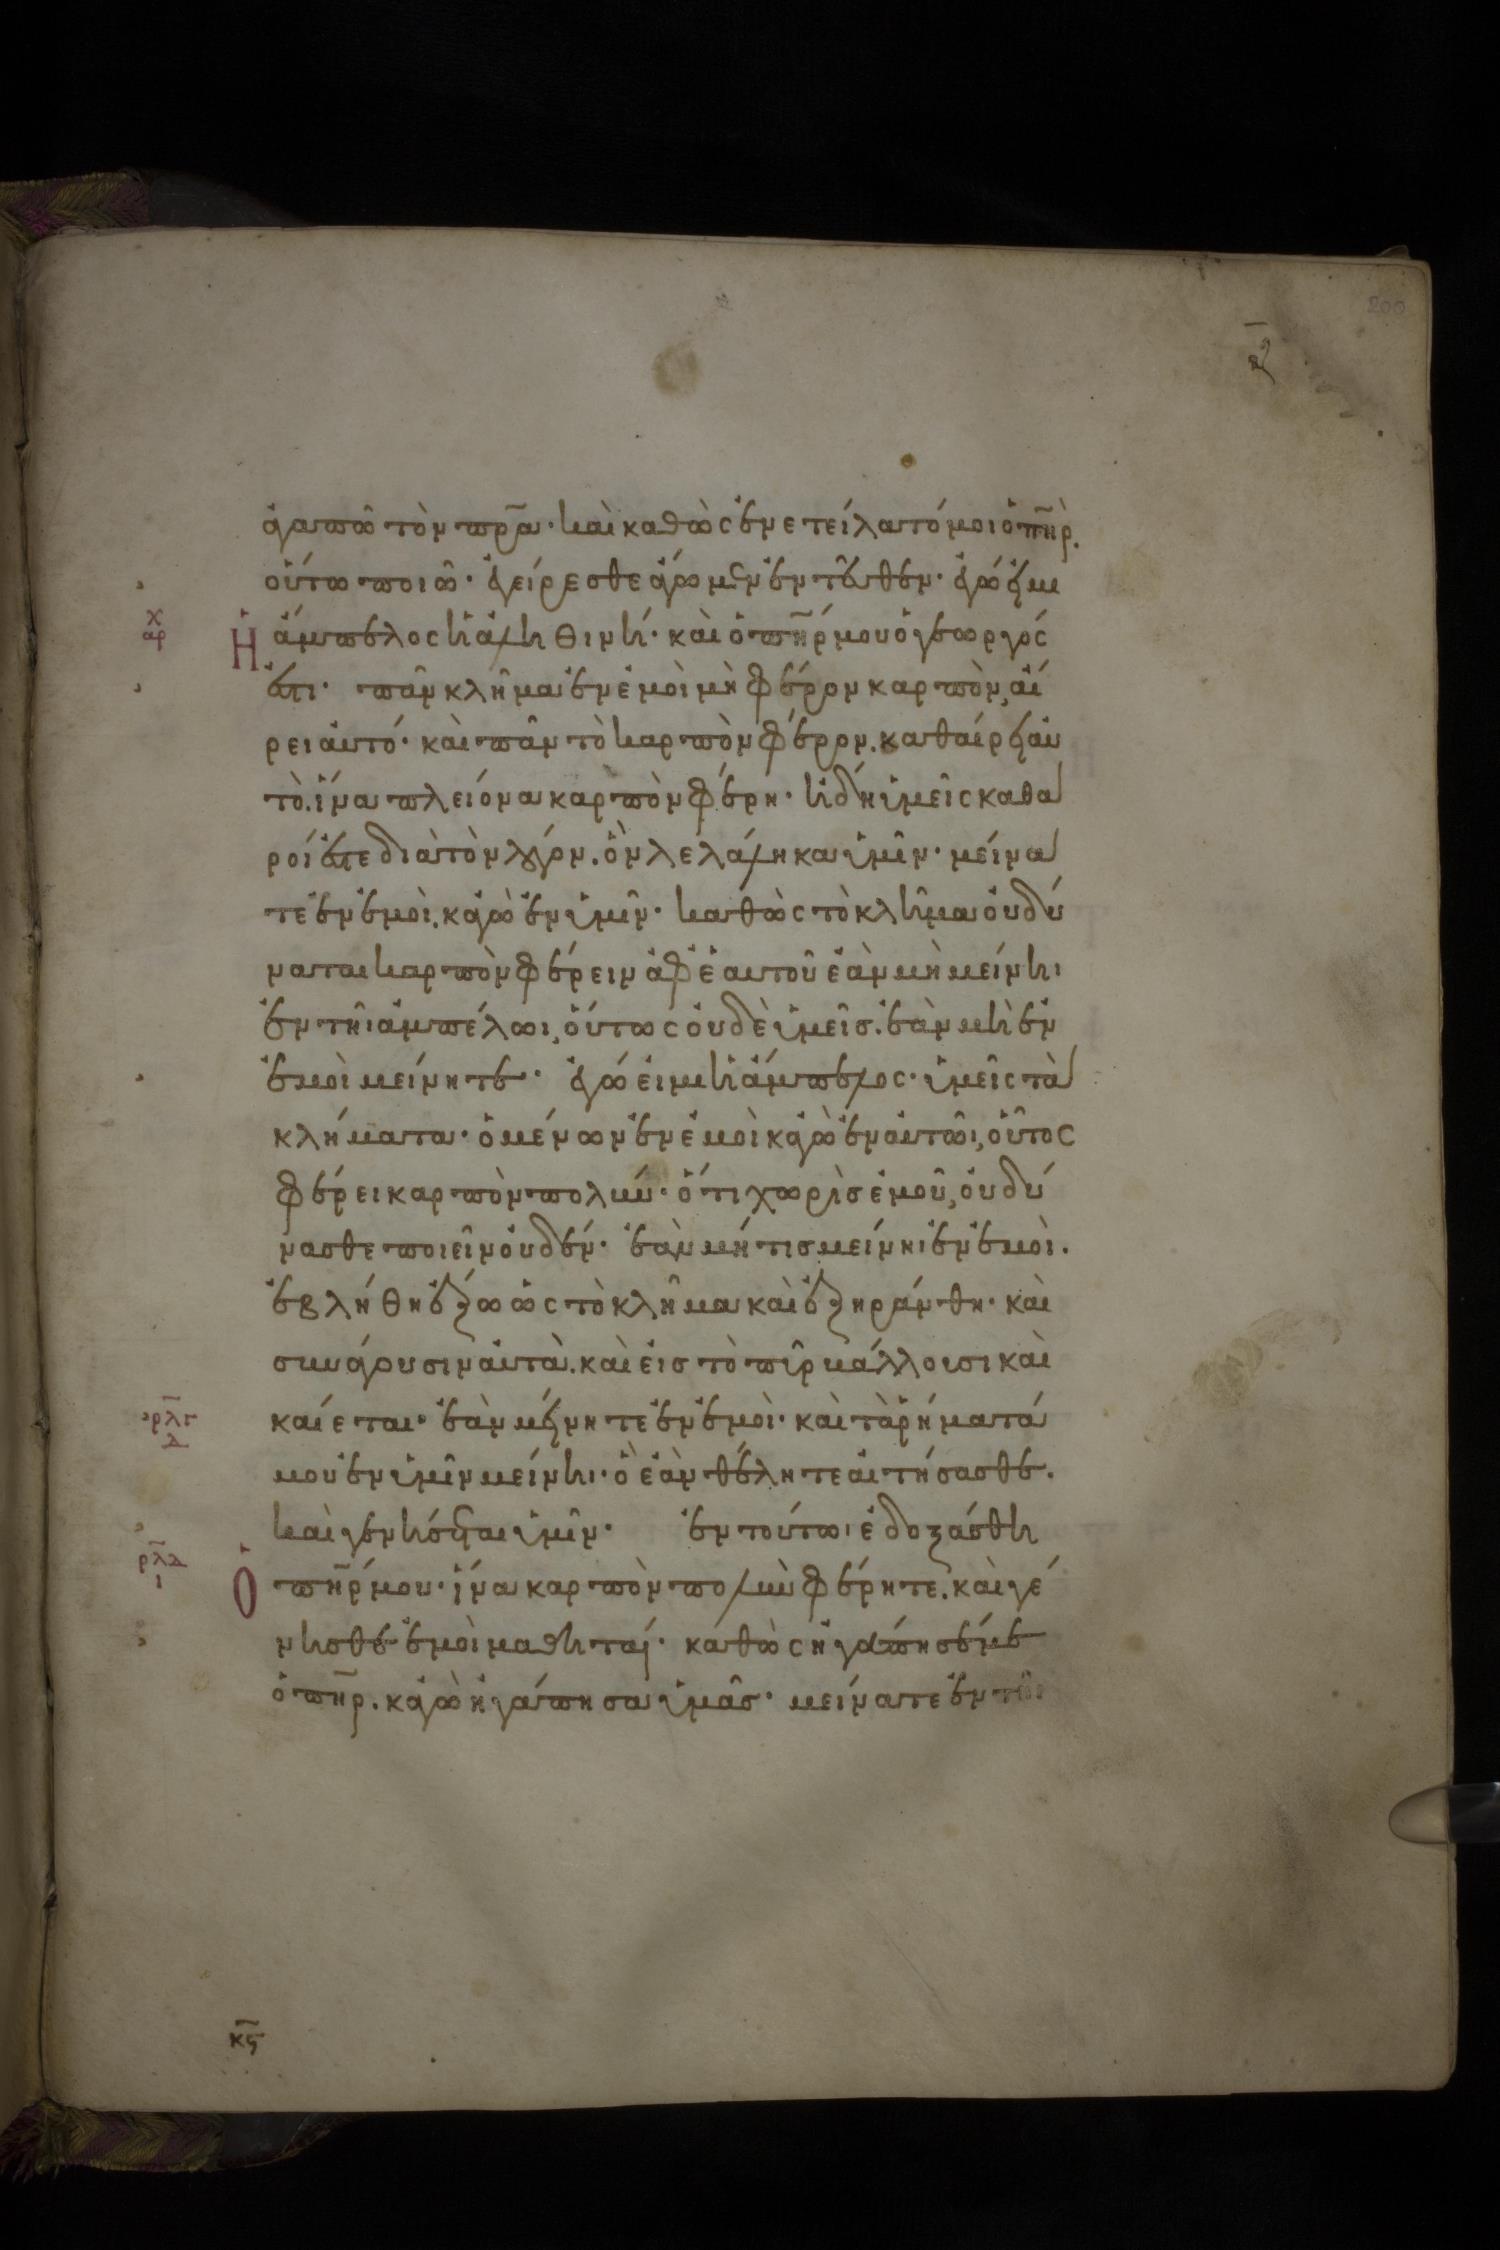 200
ἀγαπῶ τὸν πρ̅α· καὶ καθὼς ἐνετείλατό μοι ὁ πη̅ρ.
οὕτω ποιῶ· ἐγείρεσθε ἄγωμεν ἐντεῦθεν· ἐγώ εἰμι
χ
αρ
Ἡ ἄμπελος ἡ ἀληθινή· καὶ ὁ πη̅ρ μου ὁ γεωργός
ἐστι· πᾶν κλῆμα ἐν ἐμοὶ μὴ φέρον καρπὸν, αἴ
ρει αὐτό· καὶ πᾶν τὸ καρπὸν φέρον. καθαίρει αὐ
τὸ. ἵνα πλείονα καρπὸν φέρη· ἤδη ὑμεῖς καθα
ροί ἐστε διὰ τὸν λόγον. ὃν λελάληκα ὑμῖν· μείνα
τε ἐν ἐμοὶ. κἀγὼ ἐν ὑμῖν· καθὼς τὸ κλῆμα οὐ δύ
ναται καρπὸν φέρειν ἀφ ἑαυτοῦ ἐὰν μὴ μείνηι
ἐν τῆι ἀμπέλωι, οὕτως οὐδὲ ὑμεῖς. ἐὰν μὴ ἐν
ἐμοὶ μείνητε· ἐγώ εἰμι ἡ ἄμπελος· ὑμεῖς τὰ
κλήματα· ὁ μένων ἐν ἐμοὶ κἀγὼ ἐν αὐτῶι, οὗτος
φέρει καρπὸν πολύν· ὅτι χωρὶς ἐμοῦ, οὐ δύ
νασθε ποιεῖν οὐδέν· ἐὰν μή τις μείνηι ἐν ἐμοὶ.
ἐβλήθη ἔξω ὡς τὸ κλῆμα καὶ ἐξηράνθη· καὶ
συνάγουσιν αὐτὰ. καὶ εἰς τὸ πῦρ βάλλουσι καὶ
ρ̅λγ
δ
καίεται· ἐὰν μείνητε ἐν ἐμοὶ· καὶ τὰ ῥήματά
μου ἐν ὑμῖν μείνηι· ὃ ἐὰν θέλητε αἰτήσασθε.
καὶ γενήσεται ὑμῖν· ἐν τούτωι ἐδοξάσθη
ρ̅λδ
ι
Ὁ πη̅ρ μου· ἵνα καρπὸν πολὺν φέρητε. καὶ γέ
νησθε ἐμοὶ μαθηταί· καθὼς ἠγάπησέ με
ὁ πη̅ρ. κἀγὼ ἠγάπησα ὑμᾶς· μείνατε ἐν τῆι
κ̅ϛ